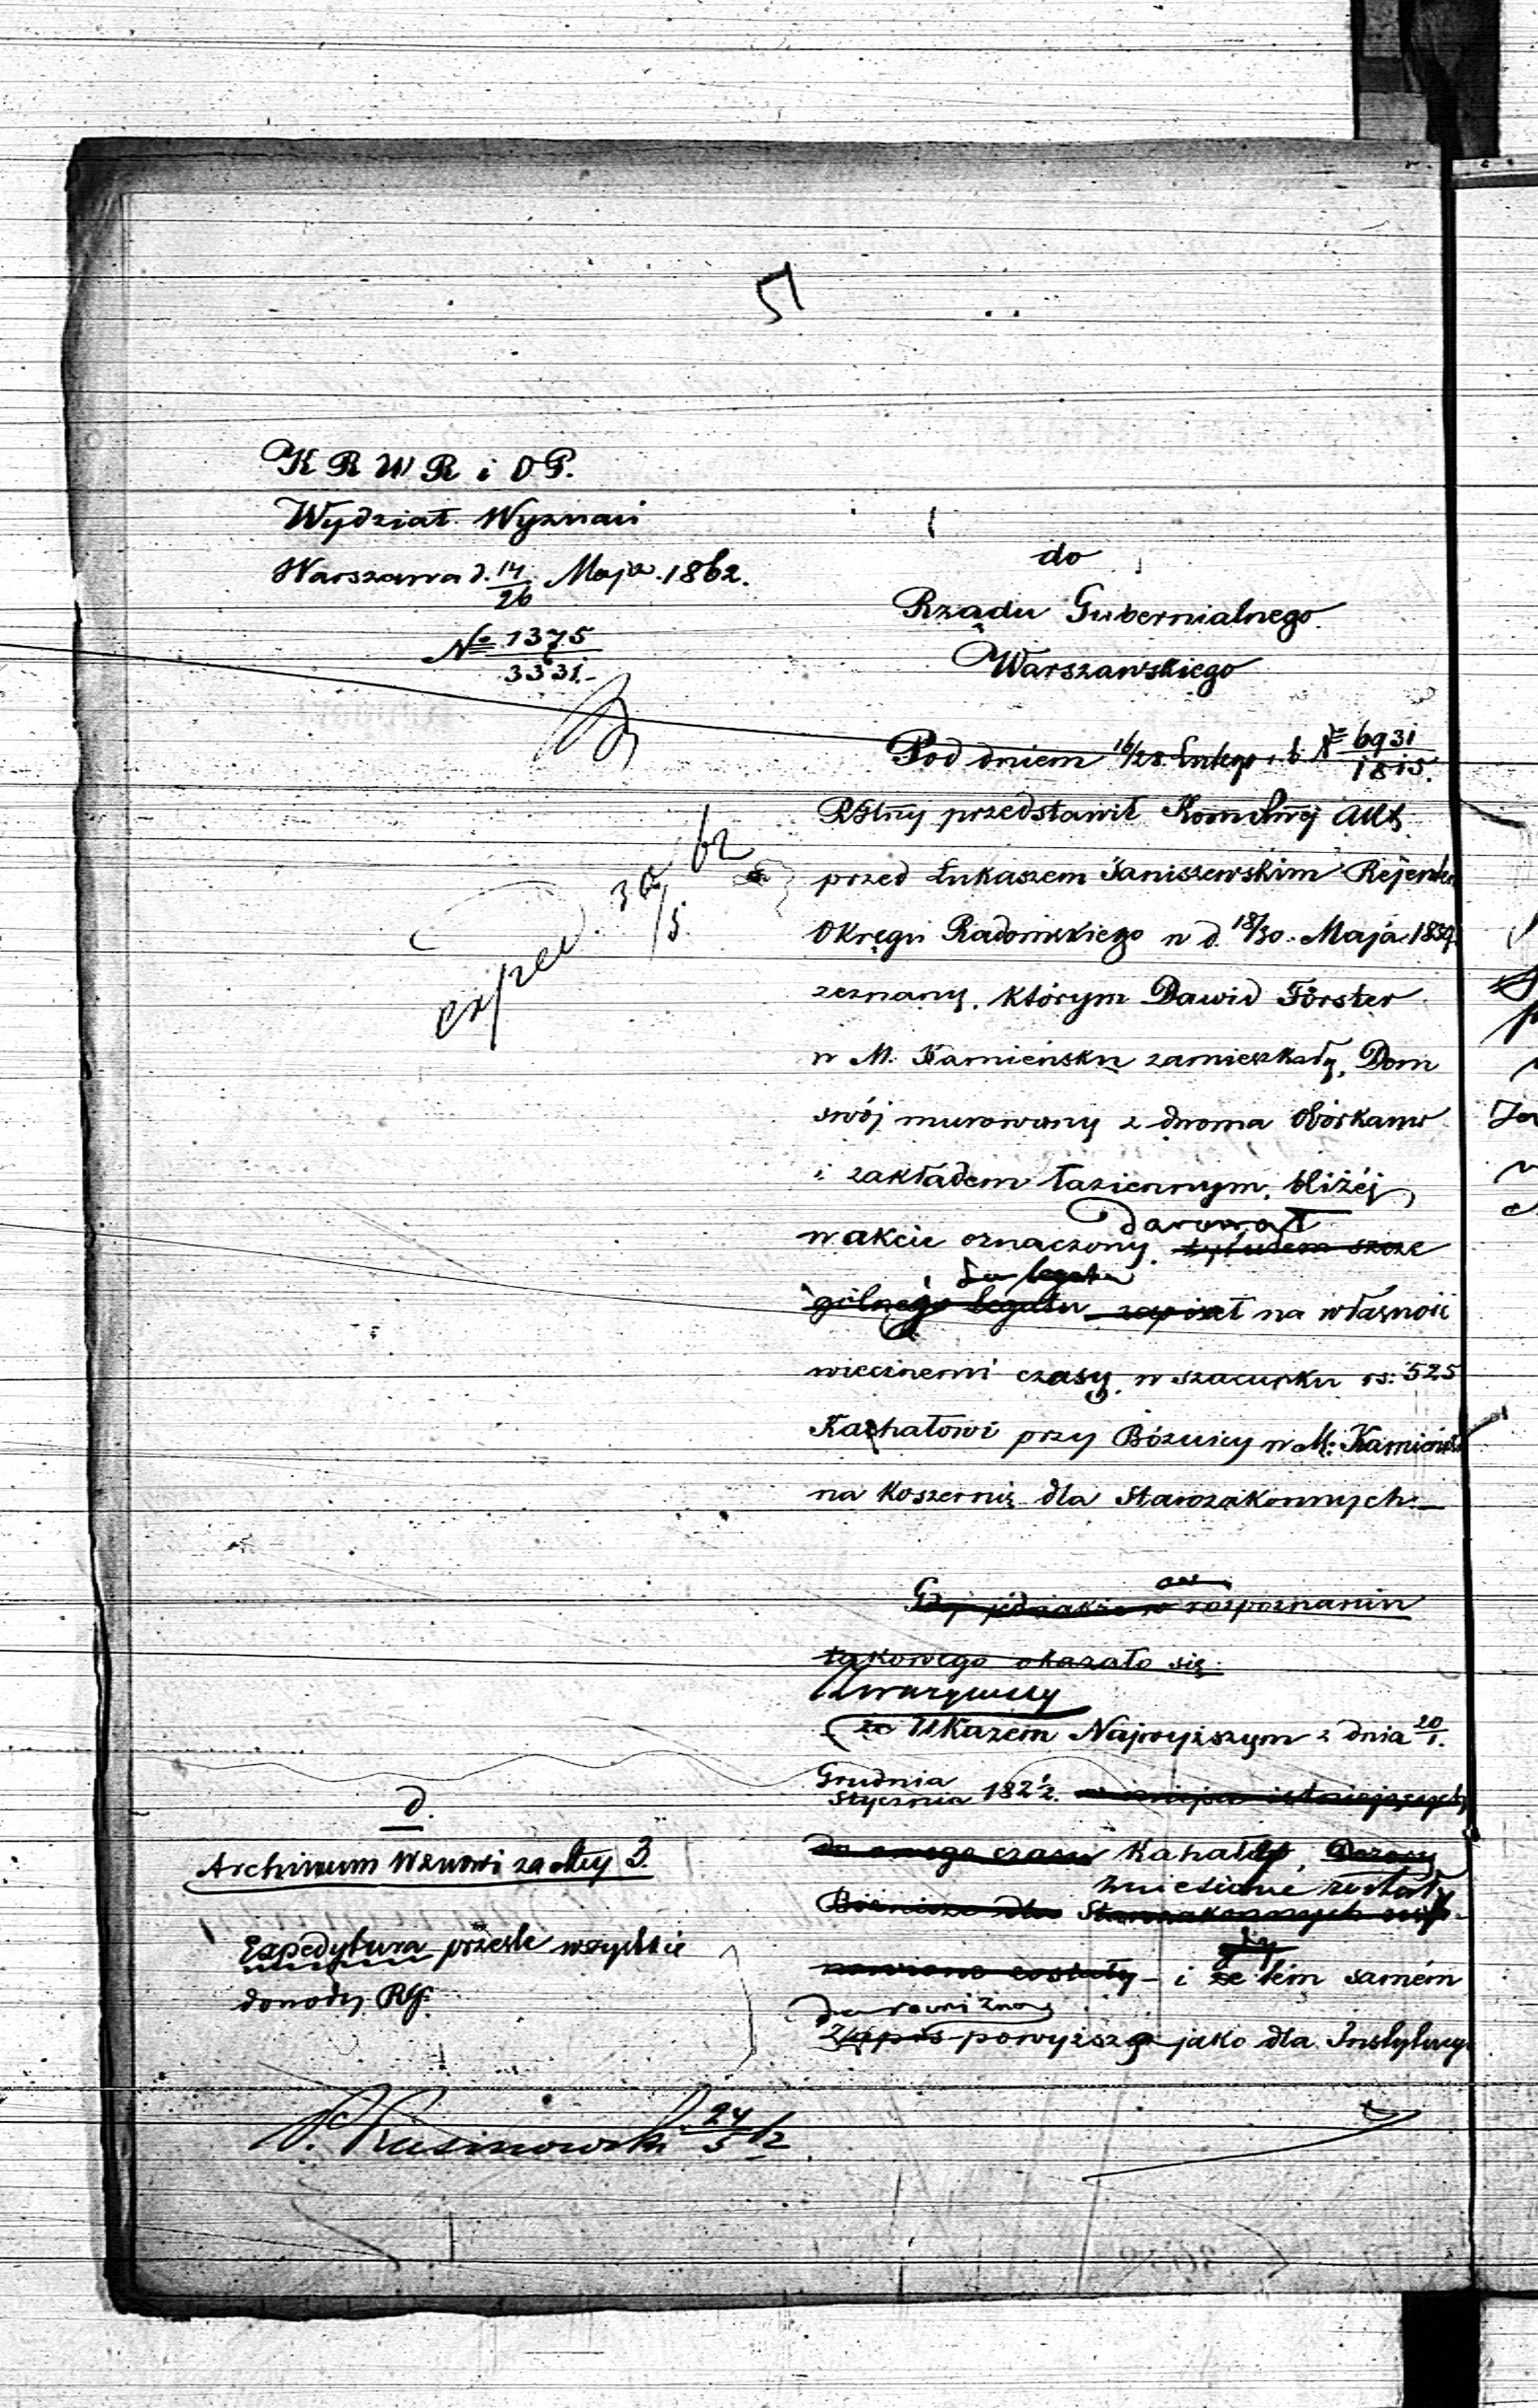 51
K R W R i O P.
Wydział Wyznań
Warszawa d. 14/26 Maja 1862.
№ 1375/3331.
do
Rządu Gubernialnego
Warszawskiego
Pod dniem 16/28 Lutego r. b. № 6931/1815.
RGlny przedstawił Kommssyi Akt
przed Łukaszem Janiszewskim Rejentem
Okręgu Radomskiego w d. 18/30 Maja 1859
zeznany, którym Dawid Förster
w M. Kamieńsku zamieszkały, Dom
swój murowany z dwoma Obórkami
i zakładem łaziennym, bliżej
darował
w akcie oznaczony, tytułem szcze
gólnego legatu zapisał na własność
wiecznemi czasy, w szacunku rs: 525
Kahałowi przy Bóżnicy w M: Kamieńsku
na Koszernię dla Starozakonnych.—
Gdy jednakże w rozpoznaniu
takowego okazało się
Zważywszy
że Ukazem Najwyższym z dnia 20/1
Grudnia/Stycznia 1821/2. w miejsce istniejących
do owego czasu Kahałów, Dozory
zniesione zostały
Bóżnicze dla Starozakonnych
zostały – i że tém samém
darowizna
Zapis powyższy jako dla Instytucyi
exped. 30/5 62
d.
Archiwum
Expedytura prześle wszystkie
dowody RG.
24/5 62